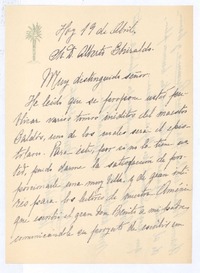 Hoy 19 de Abril,
Sr. D. Alberto Ghiraldo
Muy distinguido señor
He leido que se propone usted pu-
blicar varios tomos inéditos del maestro
Galdós, uno de los cuales será el epis-
tolario. Para éste, por si no la tiene us-
ted, puedo darme la satisfacción de pro-
porcionarle una, muy bella, y de gran inte-
rés para los lectores de nuestra América
que escribió el gran Don Benito a mi padre,
comunicándole su proyecto de escribir un